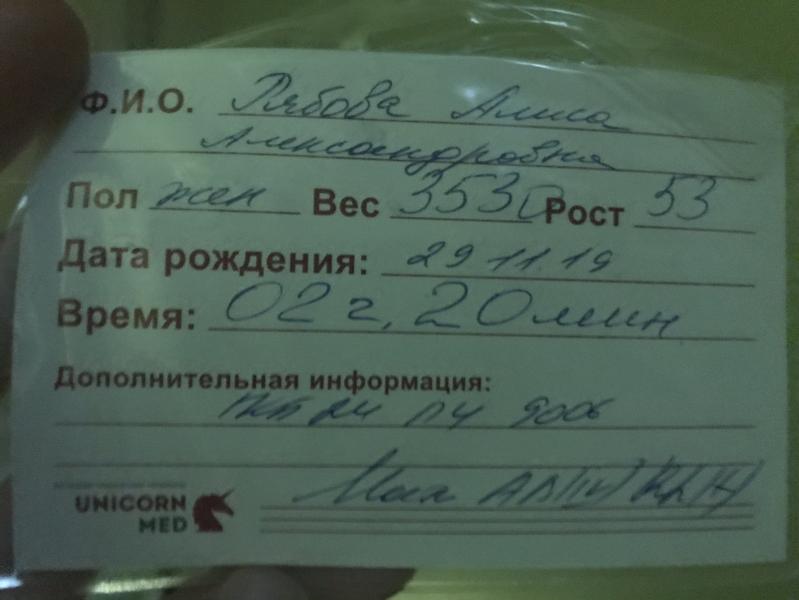 Ф.И.О. Рябова Алиса
Александровна
Пол жен Вес 3530 Рост 53
Дата рождения: 29 11.19
Время: 02 г, 20 мин
Дополнительная информация:
UNICORN
MED